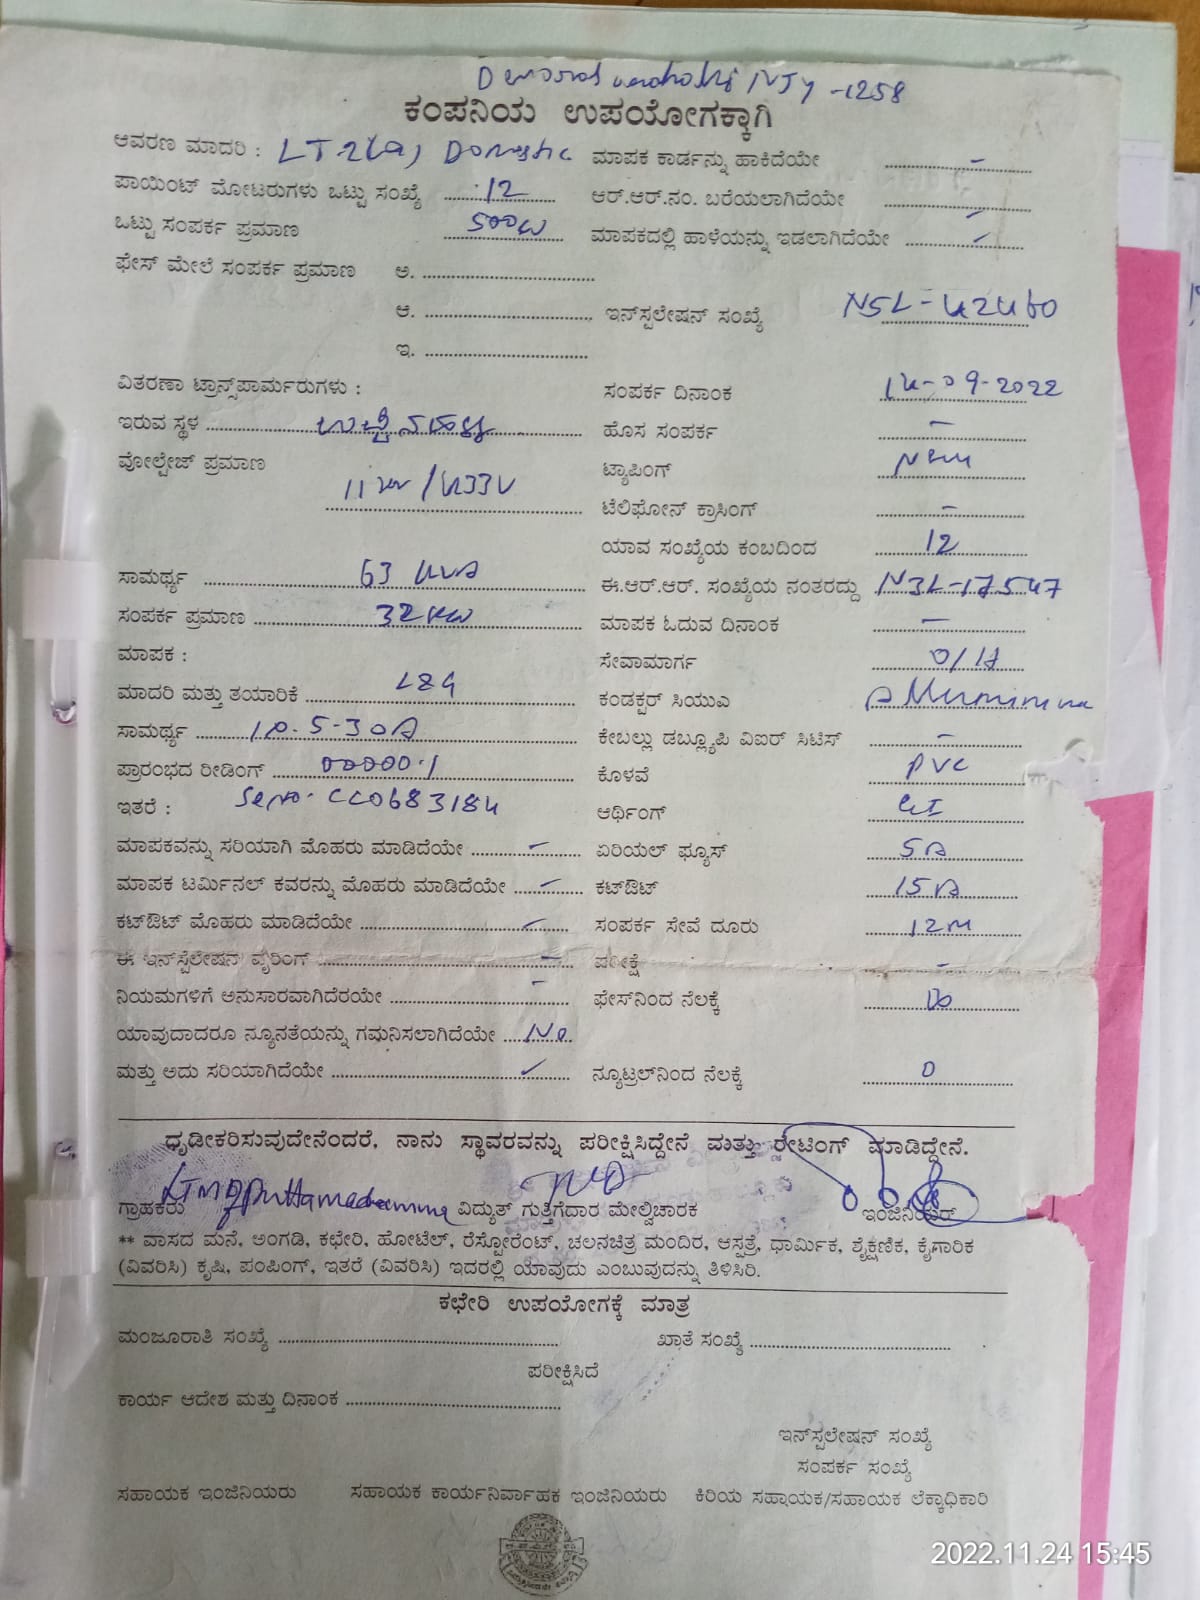 NJY -1258
ಕಂಪನಿಯ ಉಪಯೋಗಕ್ಕಾಗಿ
ಆವರಣ ಮಾದರಿ : LT-2(a), Domestic ಮಾಪಕ ಕಾರ್ಡನ್ನು ಹಾಕಿದೆಯೇ -
ಪಾಯಿಂಟ್ ಮೋಟರುಗಳು ಒಟ್ಟು ಸಂಖ್ಯೆ 12 ಆರ್.ಆರ್.ನಂ. ಬರೆಯಲಾಗಿದೆಯೇ
ಒಟ್ಟು ಸಂಪರ್ಕ ಪ್ರಮಾಣ 500W ಮಾಪಕದಲ್ಲಿ ಹಾಳೆಯನ್ನು ಇಡಲಾಗಿದೆಯೇ
ಫೇಸ್ ಮೇಲೆ ಸಂಪರ್ಕ ಪ್ರಮಾಣ ಅ.
ಆ. ಇನ್‌ಸ್ಪಲೇಷನ್ ಸಂಖ್ಯೆ NSL-42460
ಇ.
ವಿತರಣಾ ಟ್ರಾನ್ಸ್‌ಪಾರ್ಮರುಗಳು : ಸಂಪರ್ಕ ದಿನಾಂಕ 14-09-2022
ಇರುವ ಸ್ಥಳ ಹೊಸ ಸಂಪರ್ಕ -
ವೋಲ್ಟೇಜ್ ಪ್ರಮಾಣ 11 KV/433V ಟ್ಯಾಪಿಂಗ್ New
ಟೆಲಿಫೋನ್ ಕ್ರಾಸಿಂಗ್ -
ಯಾವ ಸಂಖ್ಯೆಯ ಕಂಬದಿಂದ 12
ಸಾಮರ್ಥ್ಯ 63 KVA ಈ.ಆರ್.ಆರ್. ಸಂಖ್ಯೆಯ ನಂತರದ್ದು NJL-17547
ಸಂಪರ್ಕ ಪ್ರಮಾಣ 32KW ಮಾಪಕ ಓದುವ ದಿನಾಂಕ -
ಮಾಪಕ : ಸೇವಾಮಾರ್ಗ O/H
ಮಾದರಿ ಮತ್ತು ತಯಾರಿಕೆ L&G ಕಂಡಕ್ಟರ್ ಸಿಯುಎ
ಸಾಮರ್ಥ್ಯ 10.5-30A ಕೇಬಲ್ಲು ಡಬ್ಲ್ಯೂಪಿ ವಿಐರ್ ಸಿಟಿಸ್ -
ಪ್ರಾರಂಭದ ರೀಡಿಂಗ್ 00000.1 ಕೊಳವೆ PVC
ಇತರೆ : Se no. CC0683184 ಆರ್ಥಿಂಗ್ GI
ಮಾಪಕವನ್ನು ಸರಿಯಾಗಿ ಮೊಹರು ಮಾಡಿದೆಯೇ ಏರಿಯಲ್ ಫ್ಯೂಸ್ 5A
ಮಾಪಕ ಟರ್ಮಿನಲ್ ಕವರನ್ನು ಮೊಹರು ಮಾಡಿದೆಯೇ ಕಟ್‌ಔಟ್ 15A
ಕಟ್‌ಔಟ್ ಮೊಹರು ಮಾಡಿದೆಯೇ ಸಂಪರ್ಕ ಸೇವೆ ದೂರು 12M
ಈ ಇನ್‌ಸ್ಪೆಲೇಷನ ವೈರಿಂಗ್ ಪರೀಕ್ಷೆ -
ನಿಯಮಗಳಿಗೆ ಅನುಸಾರವಾಗಿದೆರಯೇ ಫೇಸ್‌ನಿಂದ ನೆಲಕ್ಕೆ
ಯಾವುದಾದರೂ ನ್ಯೂನತೆಯನ್ನು ಗಮನಿಸಲಾಗಿದೆಯೇ No
ಮತ್ತು ಅದು ಸರಿಯಾಗಿದೆಯೇ ✓ ನ್ಯೂಟ್ರಲ್‌ನಿಂದ ನೆಲಕ್ಕೆ 0
ಧೃಡೀಕರಿಸುವುದೇನೆಂದರೆ, ನಾನು ಸ್ಥಾವರವನ್ನು ಪರೀಕ್ಷಿಸಿದ್ದೇನೆ ಮತ್ತು ರೇಟಿಂಗ್ ಮಾಡಿದ್ದೇನೆ.
ಗ್ರಾಹಕರು ವಿದ್ಯುತ್ ಗುತ್ತಿಗೆದಾರ ಮೇಲ್ವಿಚಾರಕ ಇಂಜಿನಿಯರ್
** ವಾಸದ ಮನೆ, ಅಂಗಡಿ, ಕಛೇರಿ, ಹೋಟೆಲ್, ರೆಸ್ಟೋರೆಂಟ್, ಚಲನಚಿತ್ರ ಮಂದಿರ, ಆಸ್ಪತ್ರೆ, ಧಾರ್ಮಿಕ, ಶೈಕ್ಷಣಿಕ, ಕೈಗಾರಿಕ
(ವಿವರಿಸಿ) ಕೃಷಿ, ಪಂಪಿಂಗ್, ಇತರೆ (ವಿವರಿಸಿ) ಇದರಲ್ಲಿ ಯಾವುದು ಎಂಬುವುದನ್ನು ತಿಳಿಸಿರಿ.
ಕಛೇರಿ ಉಪಯೋಗಕ್ಕೆ ಮಾತ್ರ
ಮಂಜೂರಾತಿ ಸಂಖ್ಯೆ ಖಾತೆ ಸಂಖ್ಯೆ
ಪರೀಕ್ಷಿಸಿದೆ
ಕಾರ್ಯ ಆದೇಶ ಮತ್ತು ದಿನಾಂಕ
ಇನ್‌ಸ್ಪಲೇಷನ್ ಸಂಖ್ಯೆ
ಸಂಪರ್ಕ ಸಂಖ್ಯೆ
ಸಹಾಯಕ ಇಂಜಿನಿಯರು ಸಹಾಯಕ ಕಾರ್ಯನಿರ್ವಾಹಕ ಇಂಜಿನಿಯರು ಕಿರಿಯ ಸಹಾಯಕ/ಸಹಾಯಕ ಲೆಕ್ಕಾಧಿಕಾರಿ
2022.11.24 15:45